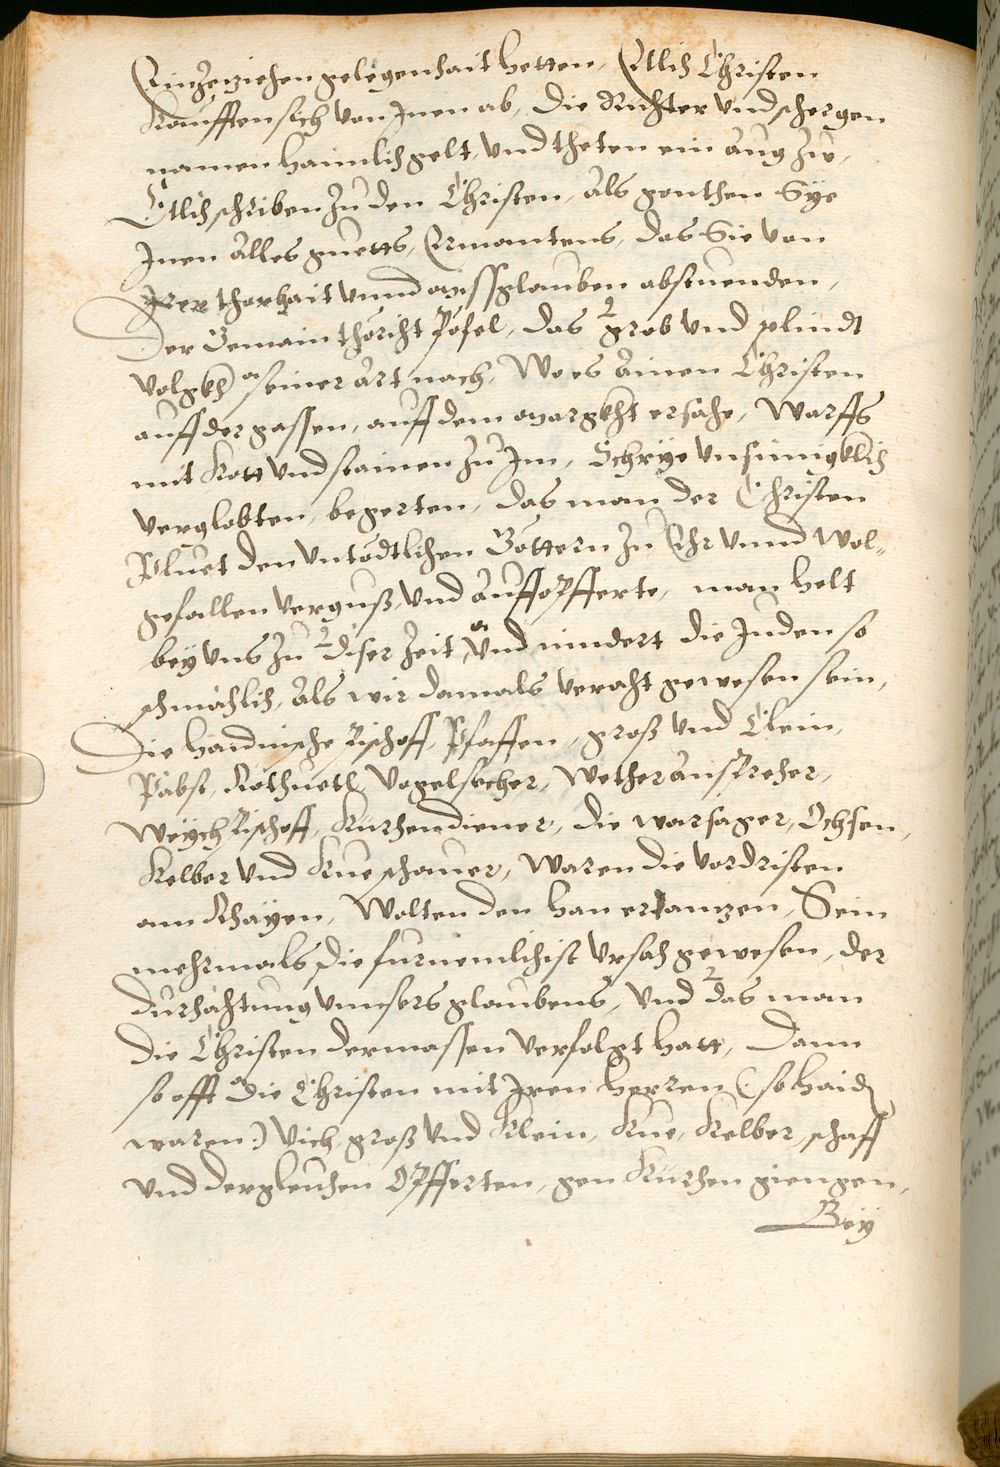 Einzeziehen gelegenhait hetten, Etlich Christen
Kaufften sich von Inen ab, die Richter vnd schergen
namen haimlich gelt, vnd theten ein aug zue,
Etlich schriben zu den Christen, als gonthen Sye
Inen alles guetts, Ermantens, das Sie von
Irer thorhait vnnd missglauben abstuenden,
Der Gemain thöricht Pöfel, das grob vnd plindt
volgkh seiner art nach, Wo es ainen Christen
auff der gassen, auff dem margkht ersahe, Warffs
mit Kott vnd stainen zu Im, Schrye vnsinnigklich
verglobten, begerten, das man der Christen
Pluet den vntödtlichen Göttern zu Ehr vnnd Wol-
gefallen verguß, vnd auffopfferte, man helt
bey vns zu diser zeit, vnd nindert die Juden so
schmächlich, als wir damals veracht gewesen sein,
Die haidnische Bischoff, Pfaffen, groß vnd Clein,
Päbst, Rothuetl, Vogelsecher, Wether ansprecher,
Weychbischoff, Kurchendiener, die warsager, Ochsen,
Kelber vnd Kue schauer, Waren die vordristen
am Rhayen, Wolten den han ertanzen, Sein
mehrmals die furnemlichist vrsach gewesen, der
durchächtung vnnsers glaubens, vnd das man
die Christen dermassen verfolgt hatt, Dann
so offt die Christen mit Iren herren (: so haiden
waren :) vich groß vnd Klein, Kue, Kelber, schaff
vnd dergleichen Opfferten, gen Kurchen giengen,
Bey